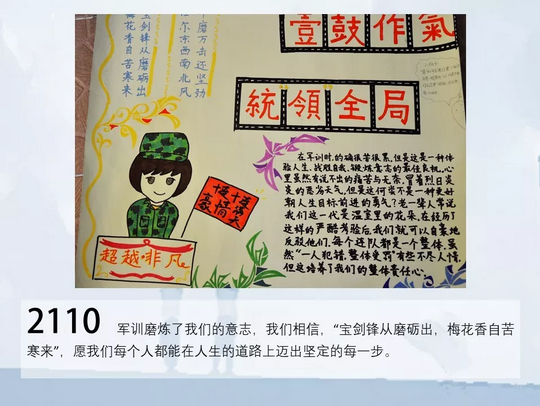 磨万击还坚劲
尔东西南北风
宝剑锋从磨砺出
梅花香自苦寒来
壹鼓作氣
統領全局
在军训时,的确很苦很累,但是这是一种体
验人生,战胜自我,锻炼意志的最佳良机。心
里虽然有说不出的痛苦与无奈,冒着烈日炎
炎的恶劣天气,但是这何尝不是一种更好
朝人生目标前进的勇气?老一辈人常说
我们这一代是温室里的花朵,在经历了
这样的严酷考验后我们就可以自豪地
反驳他们,每个连队都是一个整体,虽然
“一人犯错,整体受罚”有些不尽人情,
但这培养了我们的整体责任心。
超越·非凡
2110 军训磨炼了我们的意志，我们相信，“宝剑锋从磨砺出，梅花香自苦
寒来”，愿我们每个人都能在人生的道路上迈出坚定的每一步。